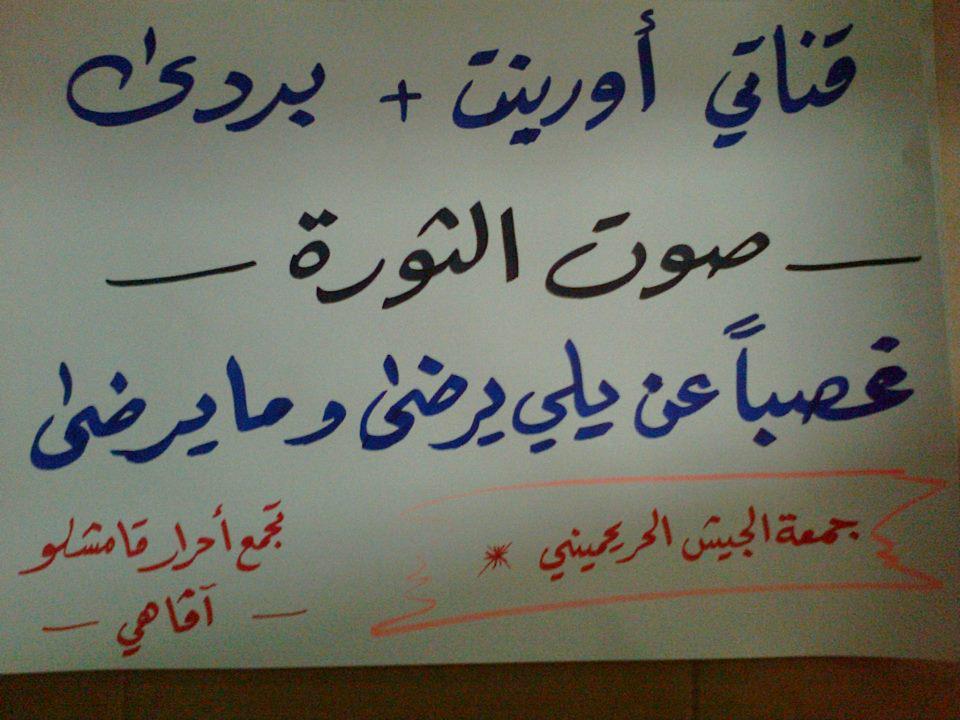 قناتي أورينت + بردى
— صوت الثورة —
غصباً عن يلي يرضى وما يرضى
جمعة الجيش الحر يحميني *
تجمع أحرار قامشلو
— آڤاهي —